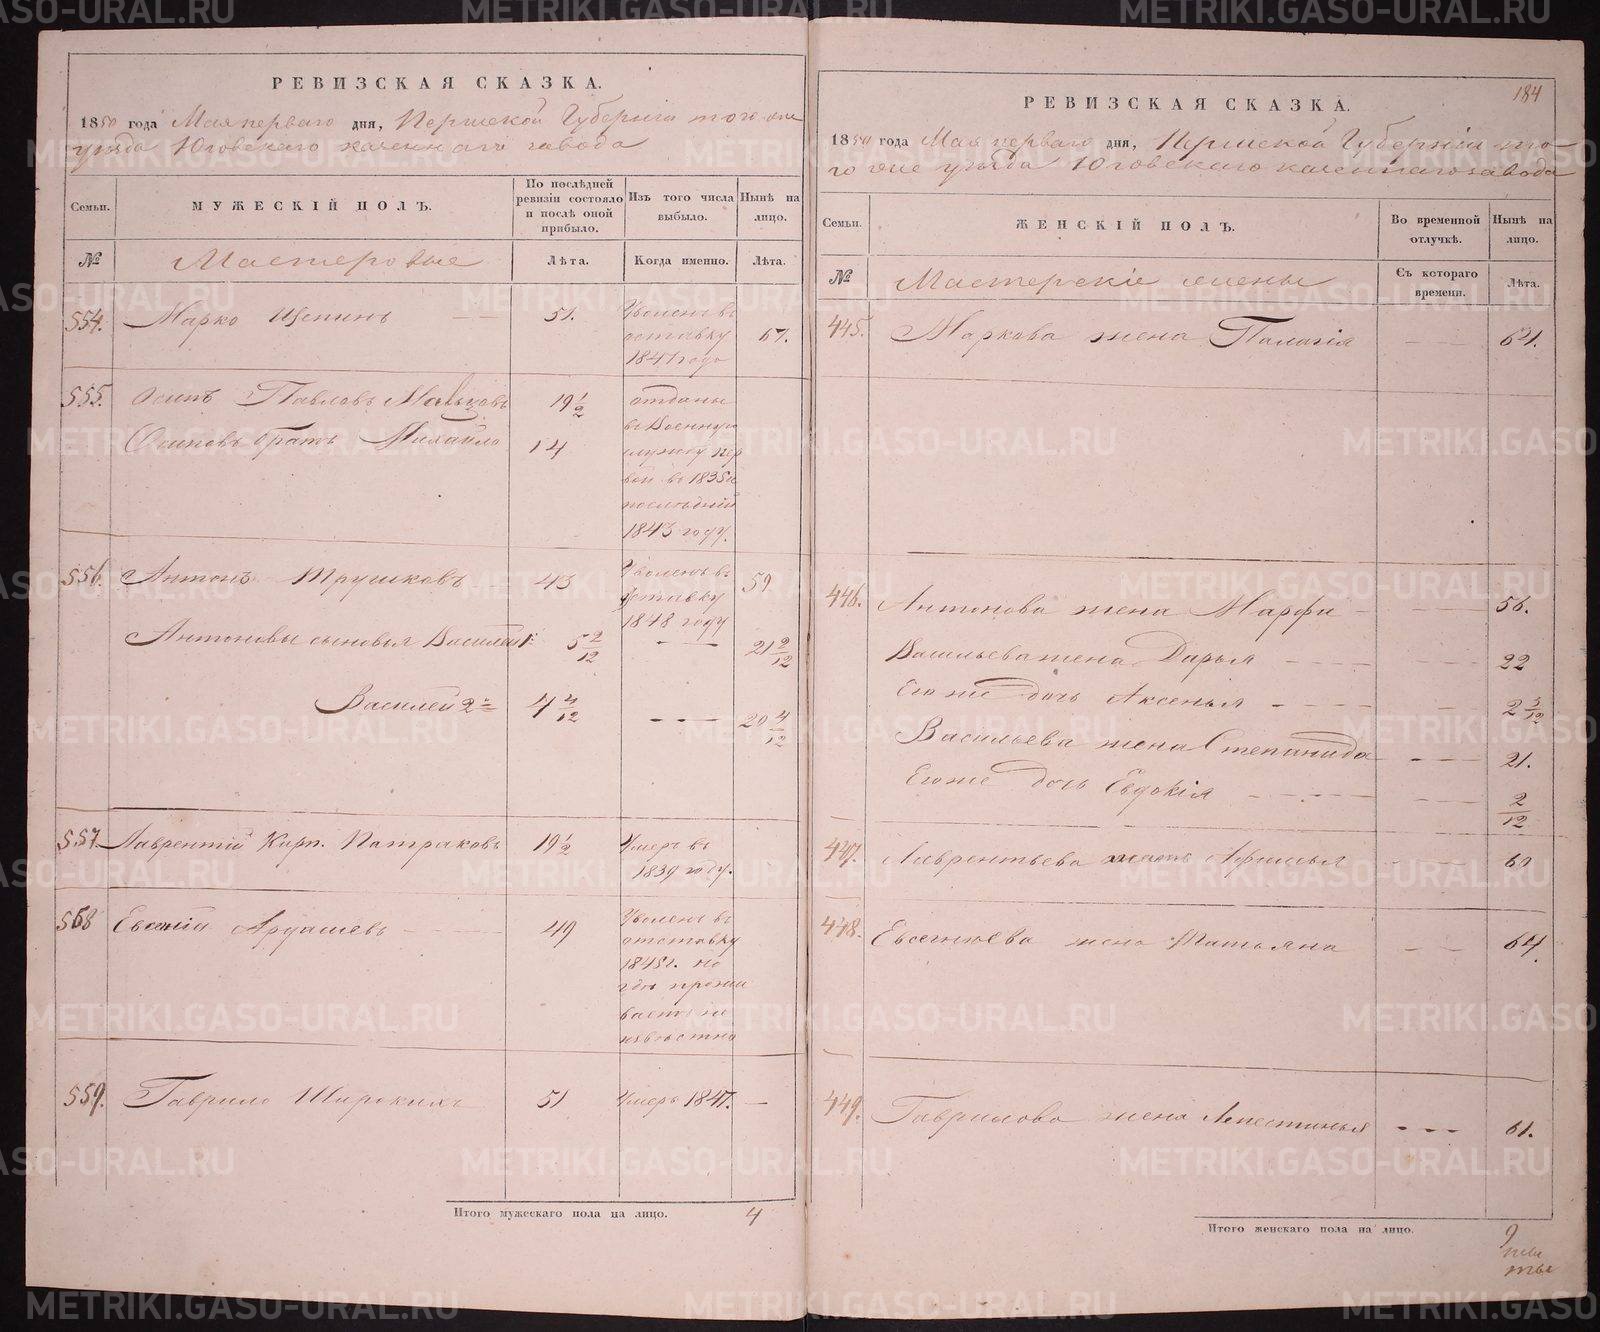 РЕВИЗСКАЯ СКАЗКА.
1850 года Мая перваго дня, Пермской Губерніи того же
уѣзда Юговскаго казеннаго завода
Семьи.
МУЖЕСКІЙ ПОЛЪ.
По послѣдней ревизіи состояло и послѣ оной прибыло.
Изъ того числа выбыло.
Нынѣ на лицо.
№
Мастеровые
Лѣта.
Когда именно.
Лѣта.
554.
Марко Щепинъ
51.
Уволенъ въ
отставку
1847 года
67.
555.
Осипъ Павловъ Мальковъ
19 1/2
отданы
Осиповъ братъ Михайло
14
въ Военную
службу пер
вой въ 1835 и
последній
1843 году.
556.
Антонъ Трушковъ
43
Уволенъ въ
отставку
1848 году
59
Антоновы сыновья Василей 1й
5 2/12
21 2/12
Василей 2й
4 4/12
20 4/12
557.
Лаврентій Карп. Патраковъ
19 1/2
Умеръ въ
1839 году.
558
Евсегній Ардашевъ
49
Уволенъ въ
отставку
1845 г. но
где прожи
ваетъ не
извѣстно
559.
Гаврило Широкихъ
51
Умеръ 1847.
Итого мужескаго пола на лицо.
4
184
РЕВИЗСКАЯ СКАЗКА.
1850 года Мая перваго дня, Пермской Губерніи то-
го же уѣзда Юговскаго казеннаго завода
Семьи.
ЖЕНСКІЙ ПОЛЪ.
Во временной отлучкѣ.
Нынѣ на лицо.
№
Мастерскіе жены
Съ котораго времени.
Лѣта.
445.
Маркова жена Палагія
64.
446.
Антонова жена Марфа
56.
Васильева жена Дарья
22
Его же дочь Аксенья
2 3/12
Васильева жена Степанида
21.
Его же дочь Евдокія
2/12
447.
Лаврентьева мать Афимья
60
448.
Евсегніева жена Татьяна
64.
449.
Гаврилова жена Апестинья
61.
Итого женскаго пола на лицо.
9
METRIKI.GASO-URAL.RU